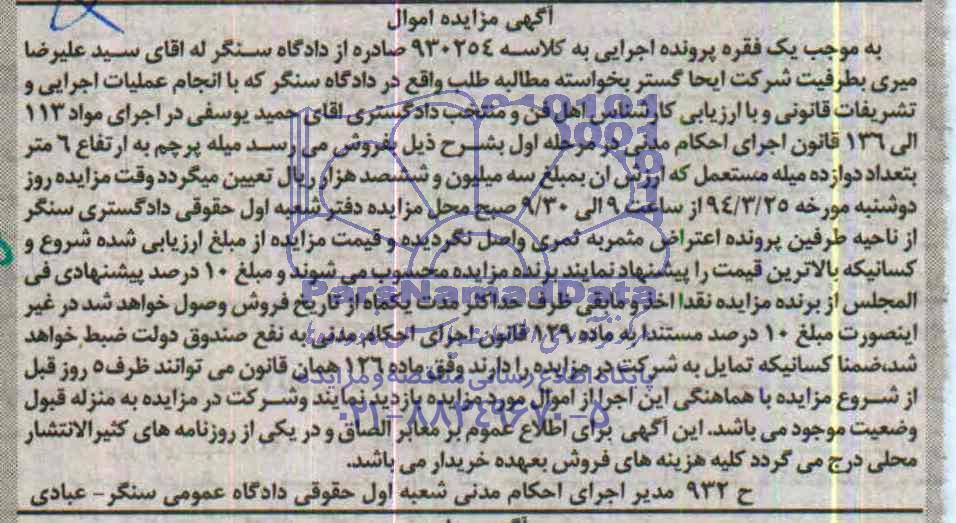 آگهی مزایده اموال
به موجب یک فقره پرونده اجرایی به کلاسه ۹۳۰۲۵٤ صادره از دادگاه سنگر له اقای سید علیرضا
میری بطرفیت شرکت ایحا گستر بخواسته مطالبه طلب واقع در دادگاه سنگر که با انجام عملیات اجرایی و
تشریفات قانونی و با ارزیابی کارشناس اهل فن و منتخب دادگستری اقای حمید یوسفی در اجرای مواد ۱۱۳
الی ۱۳٦ قانون اجرای احکام مدنی در مرحله اول بشرح ذیل بفروش می رسد میله پرچم به ارتفاع ٦ متر
بتعداد دوازده میله مستعمل که ارزش ان بمبلغ سه میلیون و ششصد هزار ریال تعیین میگردد وقت مزایده روز
دوشنبه مورخه ۹٤/۳/۲۵ از ساعت ۹ الی ۹/۳۰ صبح محل مزایده دفتر شعبه اول حقوقی دادگستری سنگر
از ناحیه طرفین پرونده اعتراض مثمربه ثمری واصل نگردیده و قیمت مزایده از مبلغ ارزیابی شده شروع و
کسانیکه بالاترین قیمت را پیشنهاد نمایند برنده مزایده محسوب می شوند و مبلغ ۱۰ درصد پیشنهادی فی
المجلس از برنده مزایده نقدا اخذ و مابقی ظرف حداکثر مدت یکماه از تاریخ فروش وصول خواهد شد در غیر
اینصورت مبلغ ۱۰ درصد مستندا به ماده ۱۲۹ قانون اجرای احکام مدنی به نفع صندوق دولت ضبط خواهد
شد،ضمنا کسانیکه تمایل به شرکت در مزایده را دارند وفق ماده ۱۲٦ همان قانون می توانند ظرف ۵ روز قبل
از شروع مزایده با هماهنگی این اجرا از اموال مورد مزایده بازدید نمایند وشرکت در مزایده به منزله قبول
وضعیت موجود می باشد. این آگهی برای اطلاع عموم بر معابر الصاق و در یکی از روزنامه های کثیرالانتشار
محلی درج می گردد کلیه هزینه های فروش بعهده خریدار می باشد.
ح ۹۳۲ مدیر اجرای احکام مدنی شعبه اول حقوقی دادگاه عمومی سنگر- عبادی
ParaNamadData
پایگاه اطلاع رسانی مناقصه و مزایده
۰۲۱-۸۸۳٤۹٦۷۰-۵